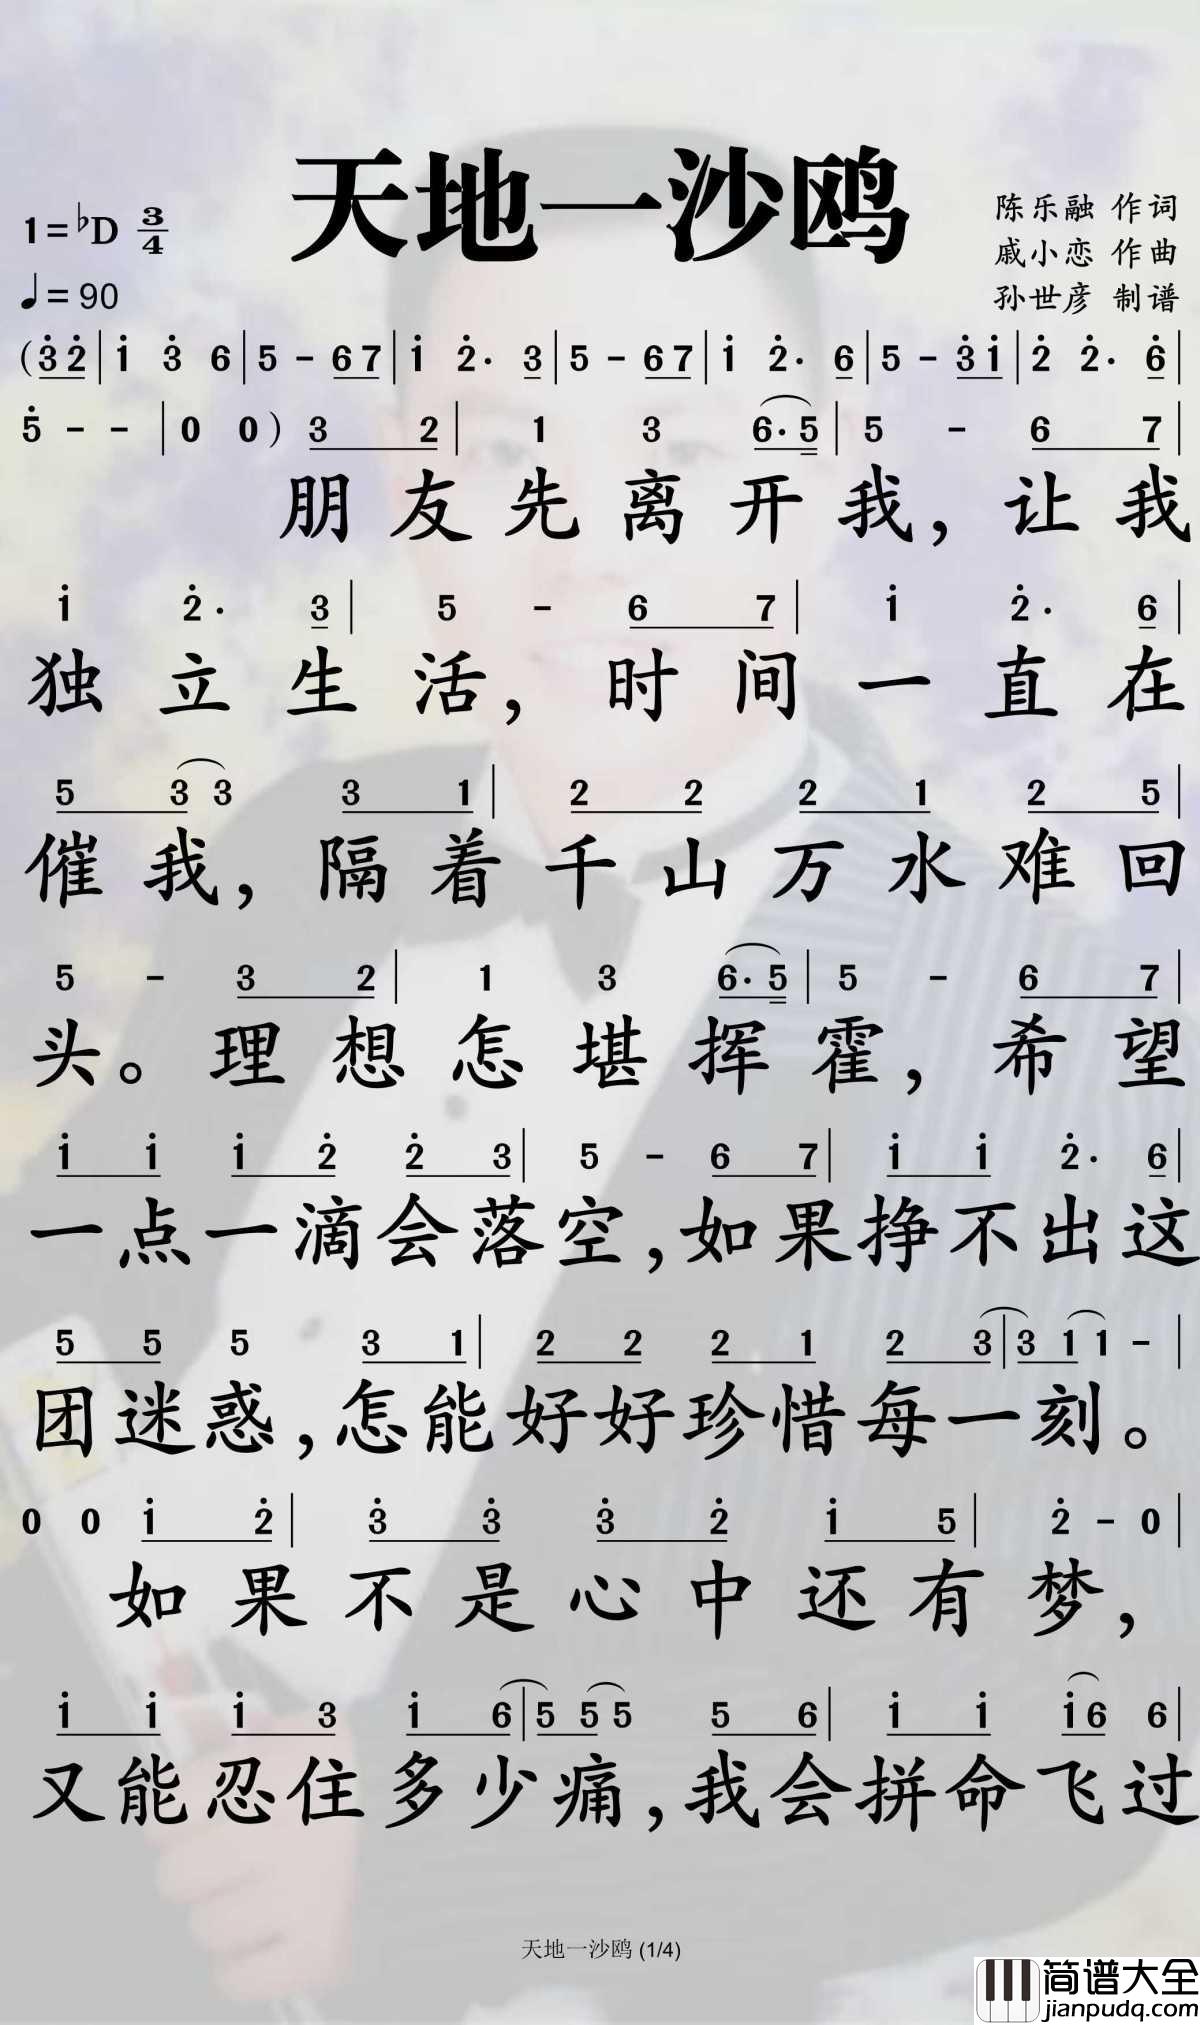 天地一沙鸥
1=♭D 3/4
♩=90
陈乐融 作词
戚小恋 作曲
孙世彦 制谱
(3̇ 2̇ | 1̇ 3̇ 6 | 5 - 6 7 | 1̇ 2̇· 3 | 5 - 6 7 | 1̇ 2̇· 6 | 5 - 3̇ 1̇ | 2̇ 2̇· 6̇ |
5̇ - - | 0 0 ) 3 2 | 1 3 6· 5 | 5 - 6 7 |
朋友先离开我，让我
1̇ 2̇· 3 | 5 - 6 7 | 1̇ 2̇· 6 |
独立生活，时间一直在
5 3 3 3 1 | 2 2 2 1 2 5 |
催我，隔着千山万水难回
5 - 3 2 | 1 3 6· 5 | 5 - 6 7 |
头。理想怎堪挥霍，希望
1̇ 1̇ 1̇ 2̇ 2̇ 3 | 5 - 6 7 | 1̇ 1̇ 2̇· 6 |
一点一滴会落空，如果挣不出这
5 5 5 3 1 | 2 2 2 1 2 3 | 3 1 1 - |
团迷惑，怎能好好珍惜每一刻。
0 0 1̇ 2̇ | 3̇ 3̇ 3̇ 2̇ 1̇ 5 | 2̇ - 0 |
如果不是心中还有梦，
1̇ 1̇ 1̇ 3 1̇ 6 | 5 5 5 5 6 | 1̇ 1̇ 1̇ 6 6 |
又能忍住多少痛，我会拼命飞过
天地一沙鸥 (1/4)
简谱大全
jianpudq.com